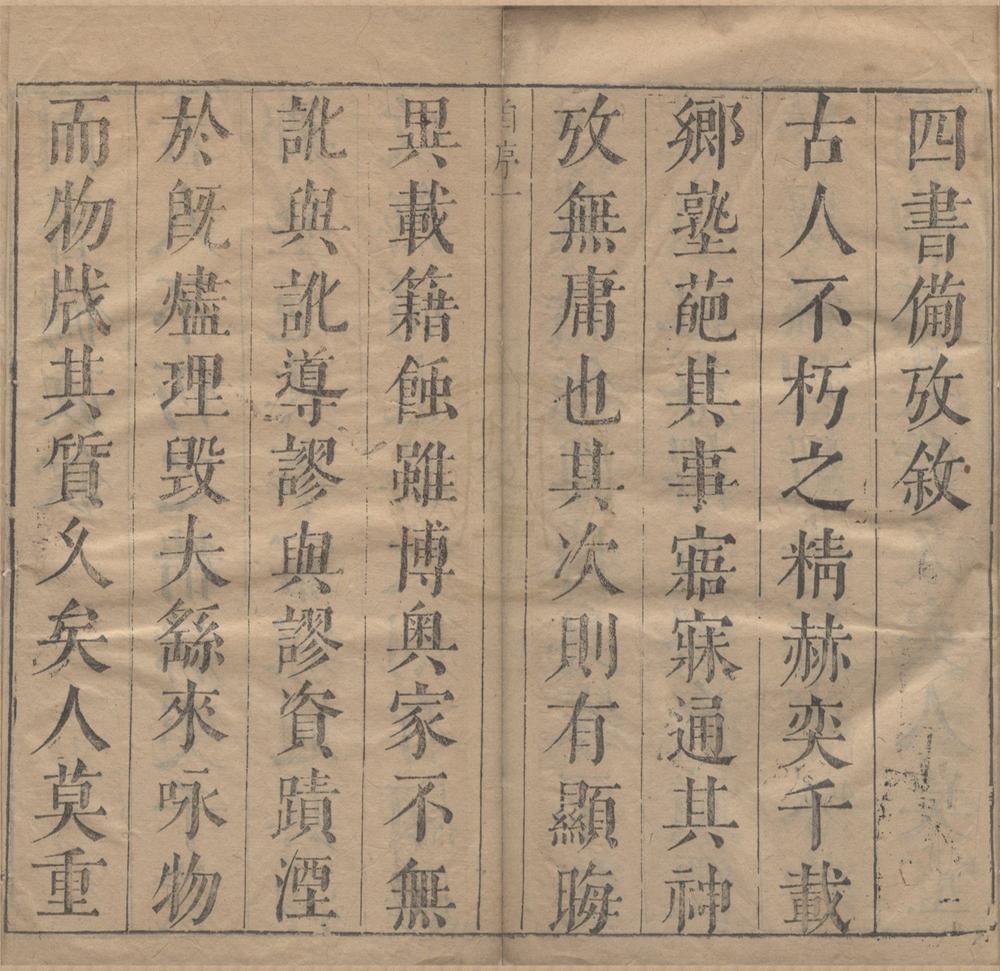 四書備攷敘
古人不朽之精赫奕千載
鄉塾葩其事寤寐通其神
攷無庸也其次則有顯晦
自序一
異載籍蝕雖博奧家不無
訛與訛導謬與謬資蹟湮
於旣爐理毀夫繇來咏物
而物戕其質久矣人莫重